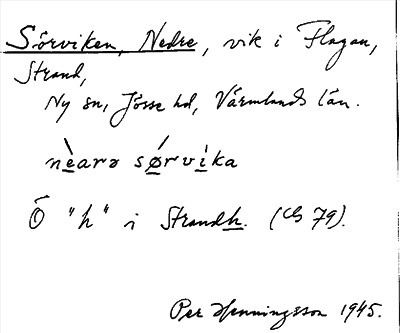 Sörviken, Nedre, vik i Flagan,
Strand,
Ny sn, Jösse hd, Värmlands län.
nèarə sǿrvìka
Ö "h" i Strandh. (CG 79).
Per Henningsson 1945.